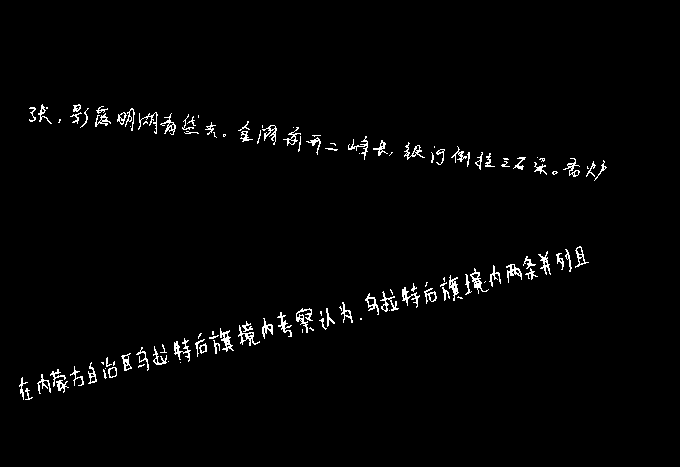 张，影落明湖青黛光。金阙前开二峰长，银河倒挂三石梁。香炉
在内蒙古自治区乌拉特后旗境内考察认为，乌拉特后旗境内两条并列且